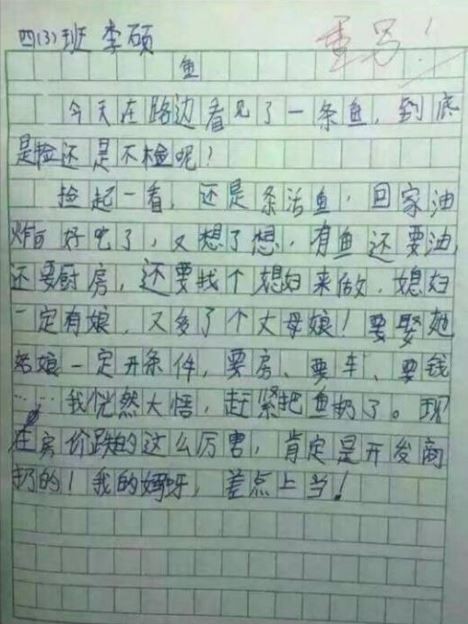 四(3)班 李硕
重写!
鱼
今天在路边看见了一条鱼,到底
是捡还是不捡呢?
捡起一看,还是条活鱼,回家油
炸可好吃了,又想了想,有鱼还要油,
还要厨房,还要找个媳妇来做,媳妇
一定有娘,又多了个丈母娘!要娶她
姑娘一定开条件,要房、要车、要钱
……我恍然大悟,赶紧把鱼扔了。现
在房价跌的这么厉害,肯定是开发商
扔的!我的妈呀,差点上当!